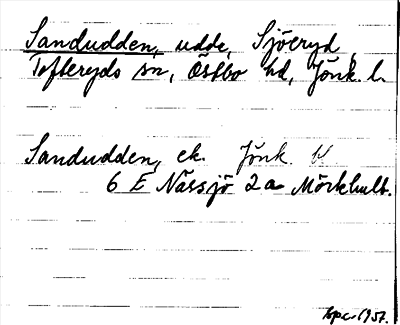 Sandudden, udde, Sjöeryd,
Tofteryds sn, Östbo hd, Jönk. l.
Sandudden, ek. Jönk.
6 E Nässjö 2a Mörkhult.
1957.